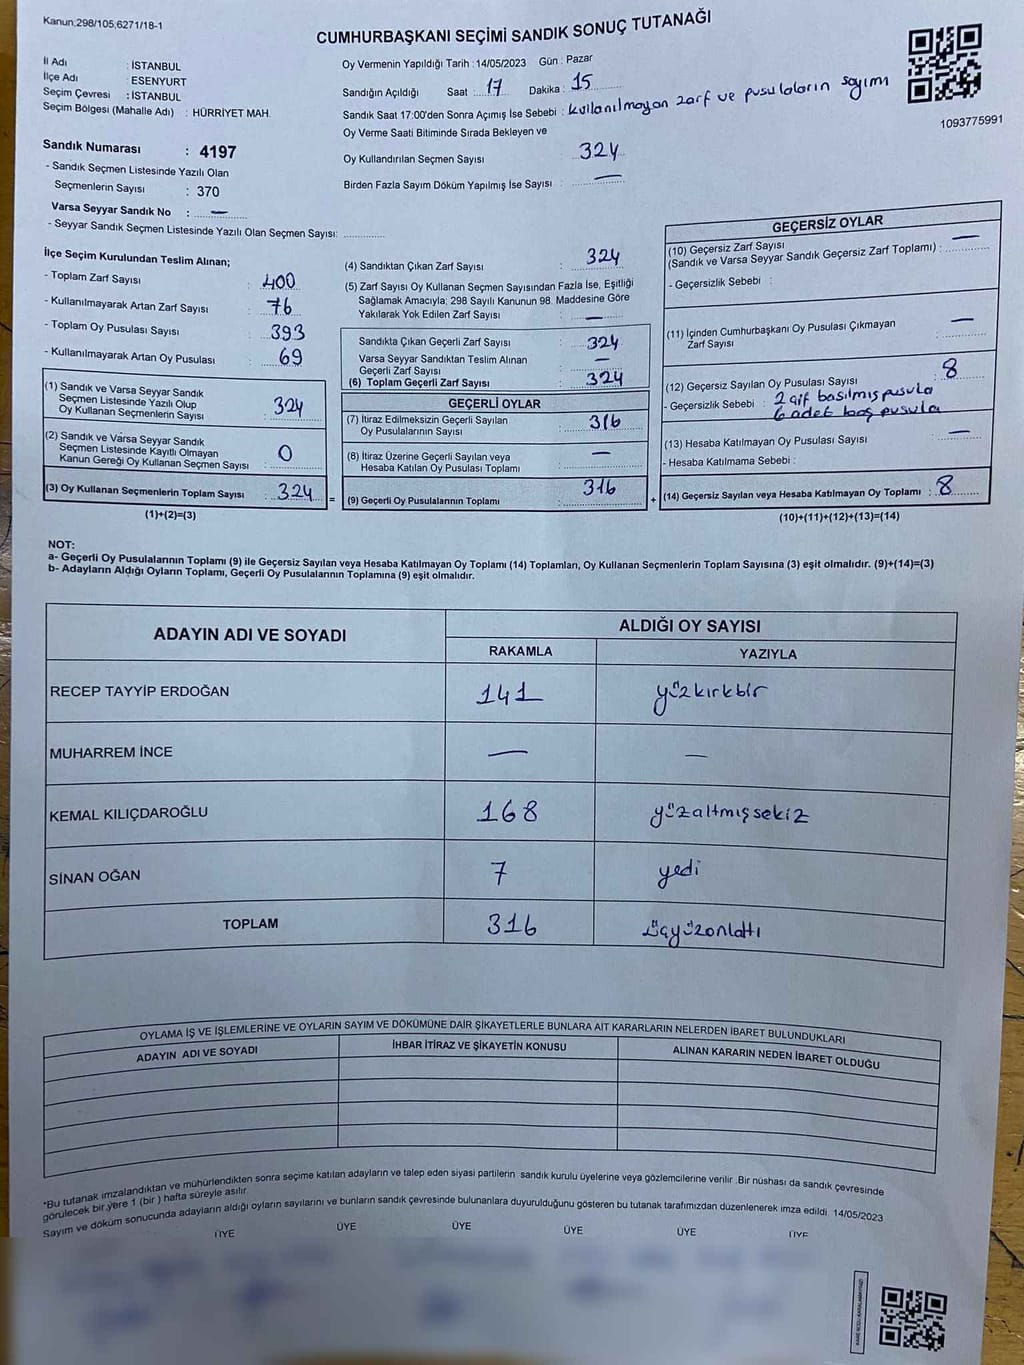 Kanun:298/105;6271/18-1
CUMHURBAŞKANI SEÇİMİ SANDIK SONUÇ TUTANAĞI
İl Adı : İSTANBUL
İlçe Adı : ESENYURT
Seçim Çevresi : İSTANBUL
Seçim Bölgesi (Mahalle Adı) : HÜRRİYET MAH.
Sandık Numarası : 4197
- Sandık Seçmen Listesinde Yazılı Olan
Seçmenlerin Sayısı : 370
Varsa Seyyar Sandık No : —
- Seyyar Sandık Seçmen Listesinde Yazılı Olan Seçmen Sayısı: ............
Oy Vermenin Yapıldığı Tarih : 14/05/2023 Gün : Pazar
Sandığın Açıldığı Saat : 17 Dakika : 15
Sandık Saat 17:00'den Sonra Açımış İse Sebebi : kullanılmayan zarf ve pusulaların sayımı
Oy Verme Saati Bitiminde Sırada Bekleyen ve
Oy Kullandırılan Seçmen Sayısı : 324
Birden Fazla Sayım Döküm Yapılmış İse Sayısı : —
1093775991
İlçe Seçim Kurulundan Teslim Alınan;
- Toplam Zarf Sayısı : 400
- Kullanılmayarak Artan Zarf Sayısı : 76
- Toplam Oy Pusulası Sayısı : 393
- Kullanılmayarak Artan Oy Pusulası : 69
(1) Sandık ve Varsa Seyyar Sandık
Seçmen Listesinde Yazılı Olup
Oy Kullanan Seçmenlerin Sayısı : 324
(2) Sandık ve Varsa Seyyar Sandık
Seçmen Listesinde Kayıtlı Olmayan
Kanun Gereği Oy Kullanan Seçmen Sayısı : 0
(3) Oy Kullanan Seçmenlerin Toplam Sayısı : 324
(1)+(2)=(3)
=
(4) Sandıktan Çıkan Zarf Sayısı : 324
(5) Zarf Sayısı Oy Kullanan Seçmen Sayısından Fazla İse, Eşitliği
Sağlamak Amacıyla; 298 Sayılı Kanunun 98. Maddesine Göre
Yakılarak Yok Edilen Zarf Sayısı : —
Sandıkta Çıkan Geçerli Zarf Sayısı : 324
Varsa Seyyar Sandıktan Teslim Alınan
Geçerli Zarf Sayısı : —
(6) Toplam Geçerli Zarf Sayısı : 324
GEÇERLİ OYLAR
(7) İtiraz Edilmeksizin Geçerli Sayılan
Oy Pusulalarının Sayısı : 316
(8) İtiraz Üzerine Geçerli Sayılan veya
Hesaba Katılan Oy Pusulası Toplamı : —
(9) Geçerli Oy Pusulalarının Toplamı : 316
+
GEÇERSİZ OYLAR
(10) Geçersiz Zarf Sayısı
(Sandık ve Varsa Seyyar Sandık Geçersiz Zarf Toplamı) : —
- Geçersizlik Sebebi :
(11) İçinden Cumhurbaşkanı Oy Pusulası Çıkmayan
Zarf Sayısı : —
(12) Geçersiz Sayılan Oy Pusulası Sayısı : 8
- Geçersizlik Sebebi : 2 çif basılmış pusula
6 adet boş pusula
(13) Hesaba Katılmayan Oy Pusulası Sayısı : —
- Hesaba Katılmama Sebebi :
(14) Geçersiz Sayılan veya Hesaba Katılmayan Oy Toplamı : 8
(10)+(11)+(12)+(13)=(14)
NOT:
a- Geçerli Oy Pusulalarının Toplamı (9) ile Geçersiz Sayılan veya Hesaba Katılmayan Oy Toplamı (14) Toplamları, Oy Kullanan Seçmenlerin Toplam Sayısına (3) eşit olmalıdır. (9)+(14)=(3)
b- Adayların Aldığı Oyların Toplamı, Geçerli Oy Pusulalarının Toplamına (9) eşit olmalıdır.
ADAYIN ADI VE SOYADI
ALDIĞI OY SAYISI
RAKAMLA YAZIYLA
RECEP TAYYİP ERDOĞAN 141 yüzkırkbir
MUHARREM İNCE — —
KEMAL KILIÇDAROĞLU 168 yüzaltmışsekiz
SİNAN OĞAN 7 yedi
TOPLAM 316 üçyüzonlattı
OYLAMA İŞ VE İŞLEMLERİNE VE OYLARIN SAYIM VE DÖKÜMÜNE DAİR ŞİKAYETLERLE BUNLARA AİT KARARLARIN NELERDEN İBARET BULUNDUKLARI
ADAYIN ADI VE SOYADI İHBAR İTİRAZ VE ŞİKAYETİN KONUSU ALINAN KARARIN NEDEN İBARET OLDUĞU
*Bu tutanak imzalandıktan ve mühürlendikten sonra seçime katılan adayların ve talep eden siyasi partilerin sandık kurulu üyelerine veya gözlemcilerine verilir. Bir nüshası da sandık çevresinde
görülecek bir yere 1 (bir ) hafta süreyle asılır.
Sayım ve döküm sonucunda adayların aldığı oyların sayılarını ve bunların sandık çevresinde bulunanlara duyurulduğunu gösteren bu tutanak tarafımızdan düzenlenerek imza edildi. 14/05/2023
ÜYE ÜYE ÜYE ÜYE ÜYE ÜYE